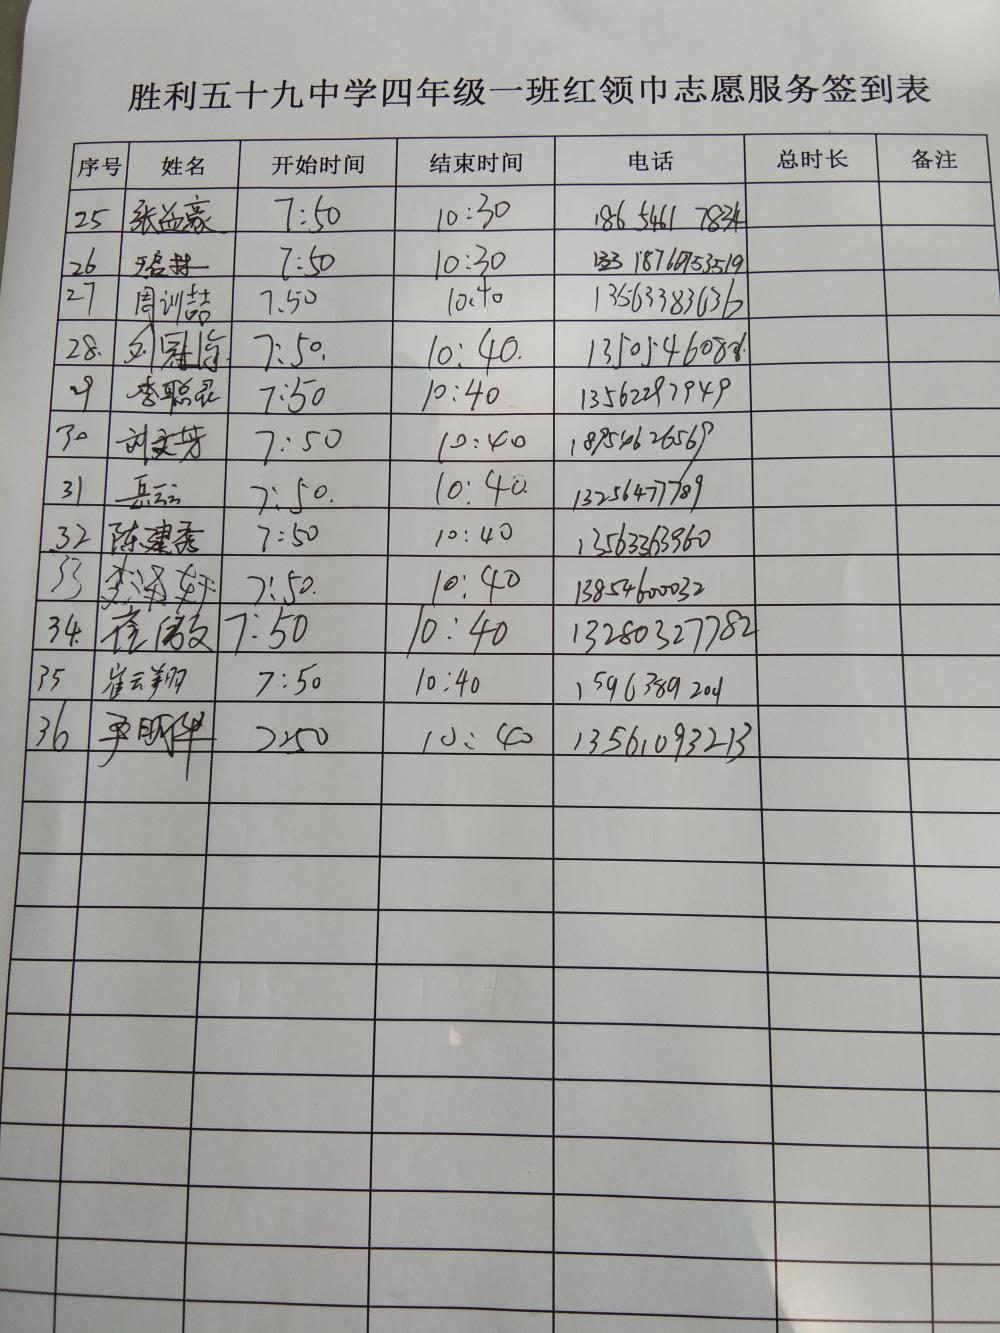 胜利五十九中学四年级一班红领巾志愿服务签到表
序号 姓名 开始时间 结束时间 电话 总时长 备注
25 张益豪 7:50 10:30 186 5461 7834
26 7:50 10:30 18760753519
27 周训喆 7:50 10:40 13563383636
28. 刘冠 7:50. 10:40. 1350546082
29 李聪 7:50 10:40 13562297949
30 刘文芳 7:50 10:40 18954626569
31 岳 7:50. 10:40. 13256477789
32 陈建秀 7:50 10:40 13563363960
33 7:50. 10:40 13854600032
34. 7:50 10:40 13280327782
35 崔云翔 7:50 10:40 1596389204
36 尹明华 7:50 10:40 13561093213